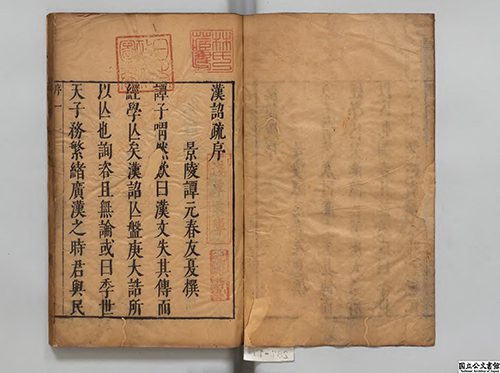 漢詔疏序
景陵譚元春友夏撰
譚子喟然歎曰漢文失其傳而
經學亾矣漢詔亾盤庚大誥所
以亾也詢咨且無論或曰季世
天子務繁緒廣漢之時君與民
序 一
林氏
國立公文書館
National Archives of Japan